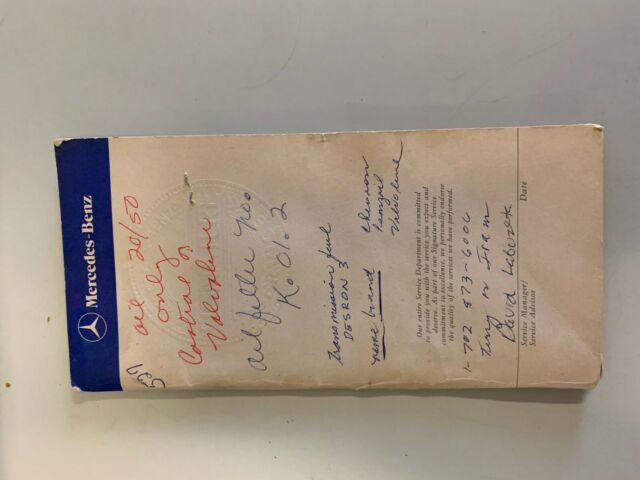 Mercedes-Benz
oil 20/50
only
Castrol or
Valvoline
oil filter
K 01.2
Transmission
DESRON 3
brand
Chevron
Valvoline
Our entire Service Department is committed
to provide you with the service you expect and
deserve. As part of our Signature Service
commitment to excellence, we personally endorse
the quality of the services we have performed.
1-702 873-6006
Tiny or
David
Service Manager/
Service Advisor
Date